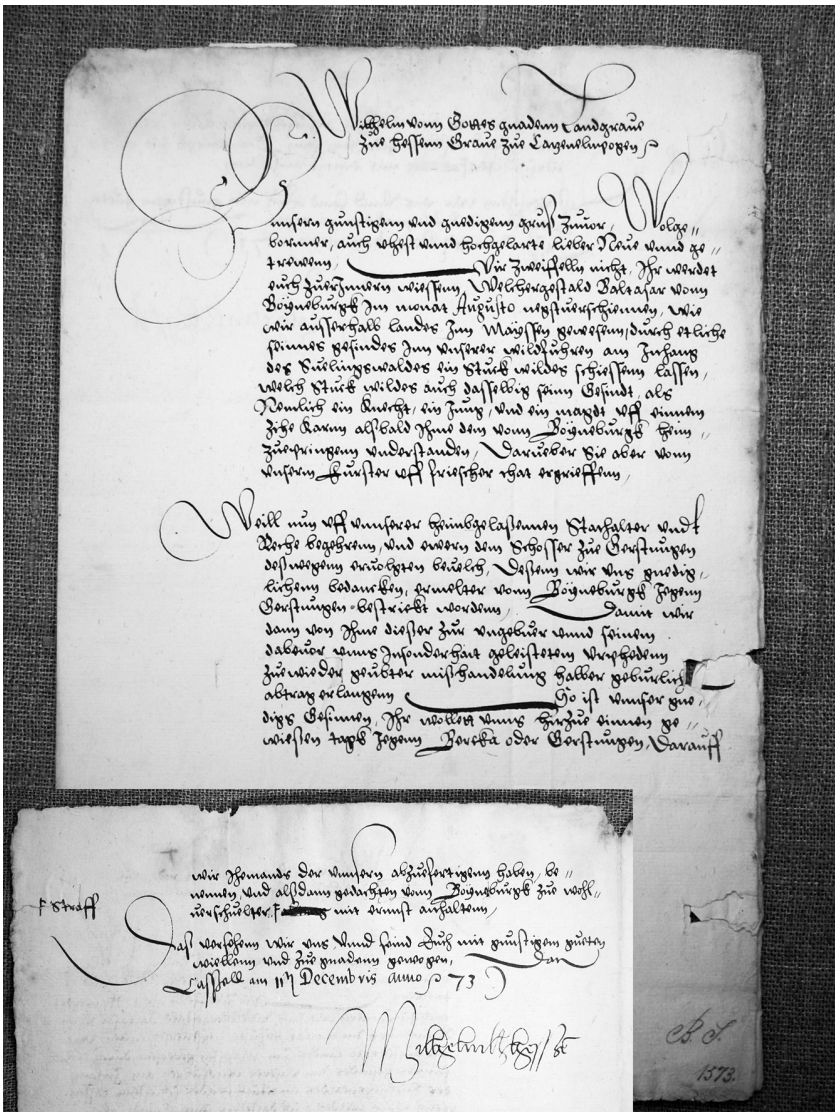 Wilhelm vonn Gottes gnadenn Landgraue
Zue Hessenn Graue zue Catzenelnpogen p
Unsern gunstigenn und gnedigenn grus zuuor, Wolge„
bornner, auch vhest unnd hochgelarte lieber Neue unnd ge„
trewenn, Wir zweiffelln nicht, Ihr werdet
euch zuerInnern wiessenn, Welchergestald Baltasar vonn
Boyneburgk Im monat Augusto negstuerschienen, wie
wir ausserhalb landes Inn Meyssen gewesenn, durch etliche
seinnes gesindes Inn unserer wildfuhren am Inhang
des Suelingswaldes ein Stuck wildes schiessenn lassen,
welch Stuck wildes auch dasselbig sein Gesindt, als
Nemlich ein Knecht, ein Jung, und ein magdt uff einnem
Zihe Karnn alsbald Ihme dem vonn Boyneburgk heim„
zuepringenn understanden, Darueber Sie aber vonn
unsernn Furster uff frischer that ergrieffenn,
Weill nun uff unnserer heimbgelassennen Stathalter undt
Rethe begehrenn, und ewern dem Schosser zue Gerstungen
deswegenn eruolgten beuelch, Dessenn wir uns gnedig„
lichenn bedancken, ermelter vonn Boyneburgk Jegenn
Gerstungen bestrickt wordenn, Damit wir
dann von Ihme dieser zur ungebuer unnd seinem
dabeuor unns Insonderhait geleistetem Urphedenn
zuewieder geubter mishandelung halber geburlich
abtrag erlangenn So ist unnser gne„
digs Gesinnen, Ihr wollett unns hirzue einnen ge„
wiessen tagk Jegenn Bercka oder Gerstungen, Darauff
wir Jhemands der unnsern abzuefertigenn haben, be„
nennen, und alsdann gedachten vonn Boyneburgk zue wohl„
uerschuelter F mit ernnst anhaltenn,
F Straff
Das versehenn wir uns Unnd seind Euch mit gunstigem gueten
wiellenn und zue gnadenn gewogen, Dat
Cassell am 11t Decembris anno p 73
Wilhelm L z Hessen
B. I.
1573.